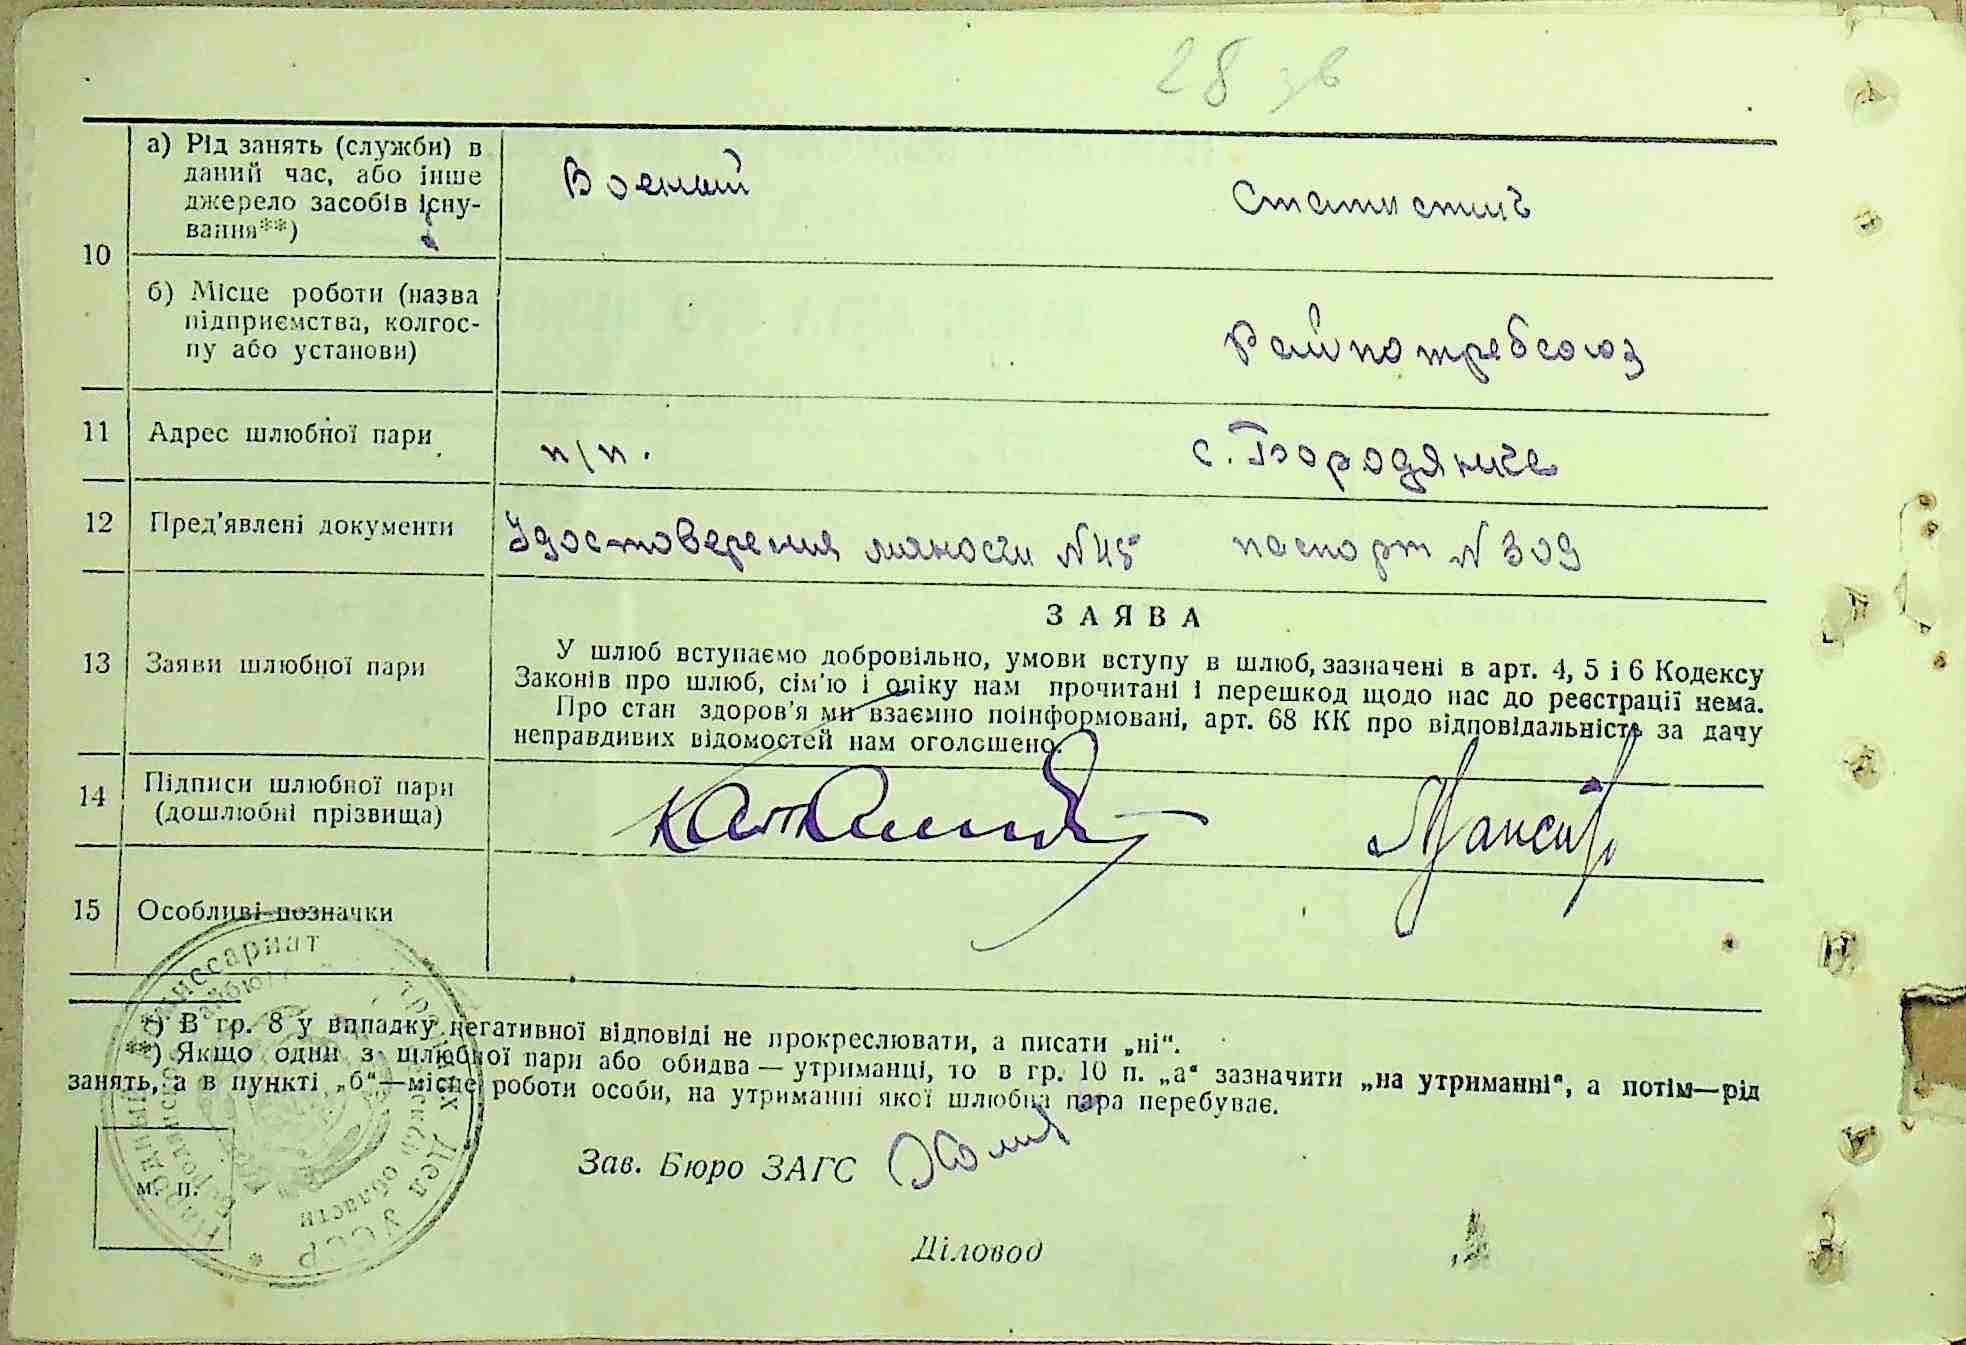 28 зв
10
а) Рід занять (служби) в
даний час, або інше
джерело засобів існу-
вання**)
Военный
Статистик
б) Місце роботи (назва
підприємства, колгос-
пу або установи)
Райпотребсоюз
11
Адрес шлюбної пари
п/п.
с. Бородянка
12
Пред'явлені документи
Удостоверения личности №45
паспорт № 309
13
Заяви шлюбної пари
ЗАЯВА
У шлюб вступаємо добровільно, умови вступу в шлюб, зазначені в арт. 4, 5 і 6 Кодексу
Законів про шлюб, сім'ю і опіку нам прочитані і перешкод щодо нас до реєстрації нема.
Про стан здоров'я ми взаємно поінформовані, арт. 68 КК про відповідальність за дачу
неправдивих відомостей нам оголошено.
14
Підписи шлюбної пари
(дошлюбні прізвища)
15
Особливі позначки
*) В гр. 8 у випадку негативної відповіді не прокреслювати, а писати „ні“.
**) Якщо один з шлюбної пари або обидва — утриманці, то в гр. 10 п. „а“ зазначити „на утриманні“, а потім—рід
занять, а в пункті „б“—місце роботи особи, на утриманні якої шлюбна пара перебуває.
Зав. Бюро ЗАГС
м. п.
Діловод
Народный Комиссариат Внутренних Дел УССР
области